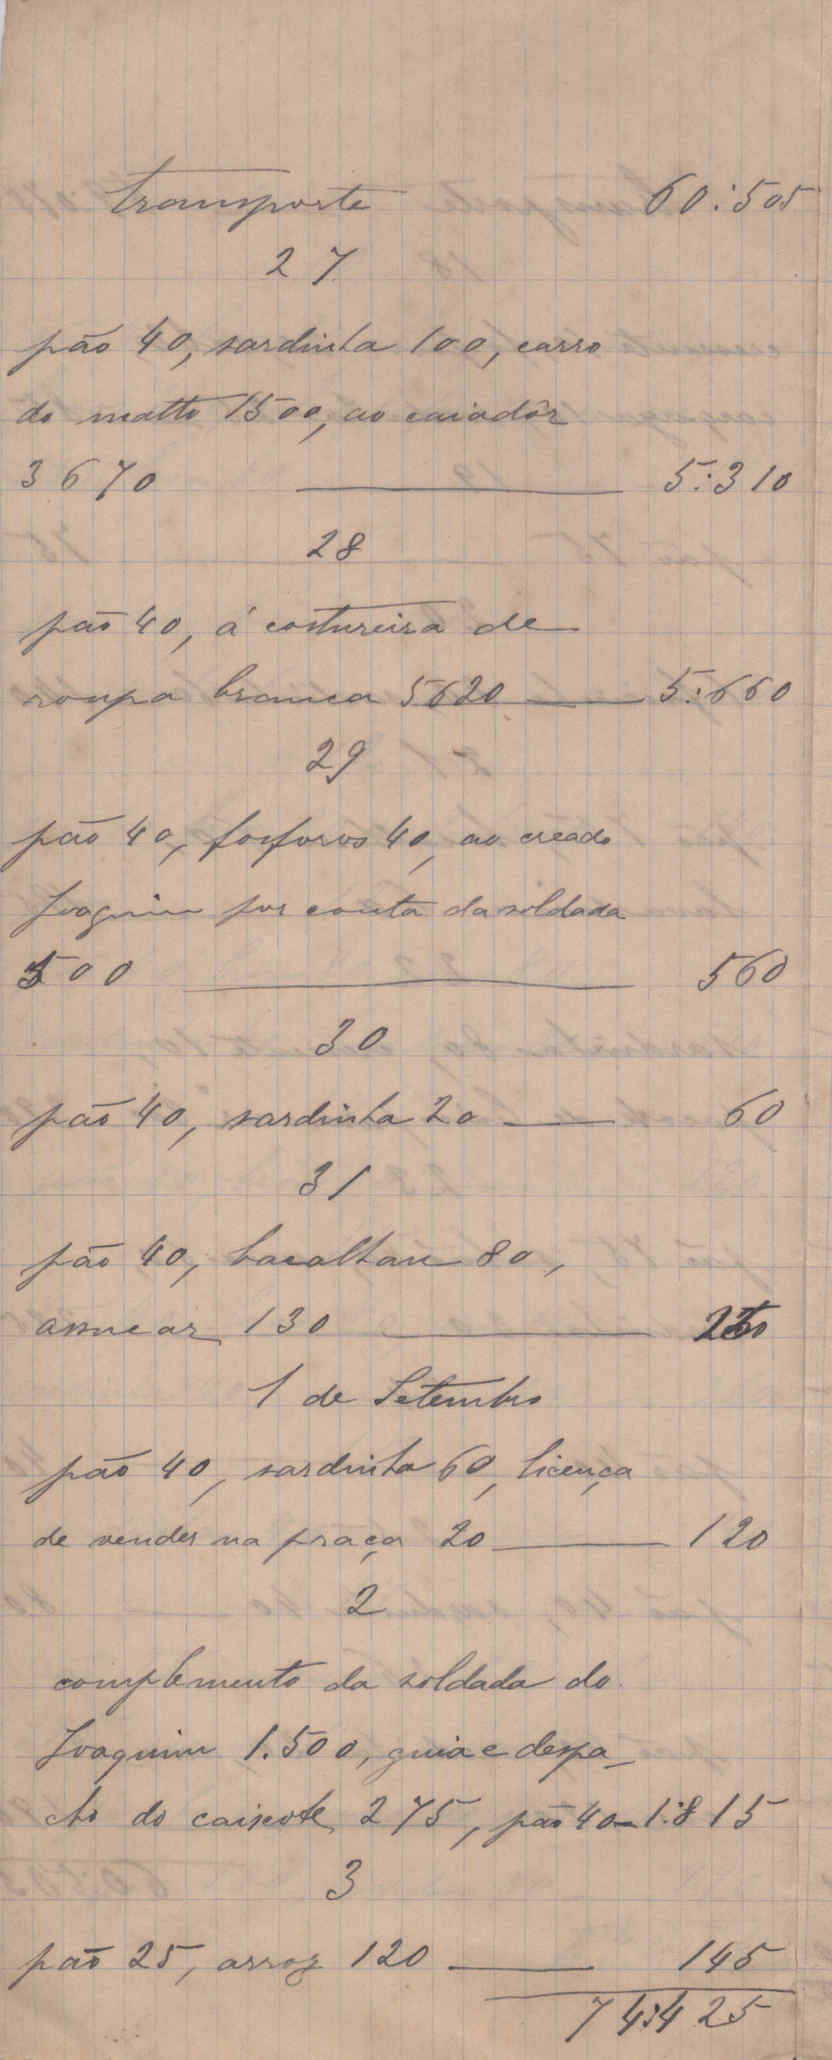 transporte 60:505
27
pão 40, sardinha 100, carro
do matto 1500, ao caiadôr
3670 5:310
28
pão 40, á costureira de
roupa branca 5620 5:660
29
pão 40, fosforos 40, ao creado
Joaquim por conta da soldada
500 560
30
pão 40, sardinha 20 60
31
pão 40, bacalhau 80,
assucar 130 250
1 de Setembro
pão 40, sardinha 60, licença
de vender na praça 20 120
2
complemento da soldada do
Joaquim 1.500, guia e despa_
cho do caixote 275, pão 40 1:815
3
pão 25, arroz 120 145
74:425